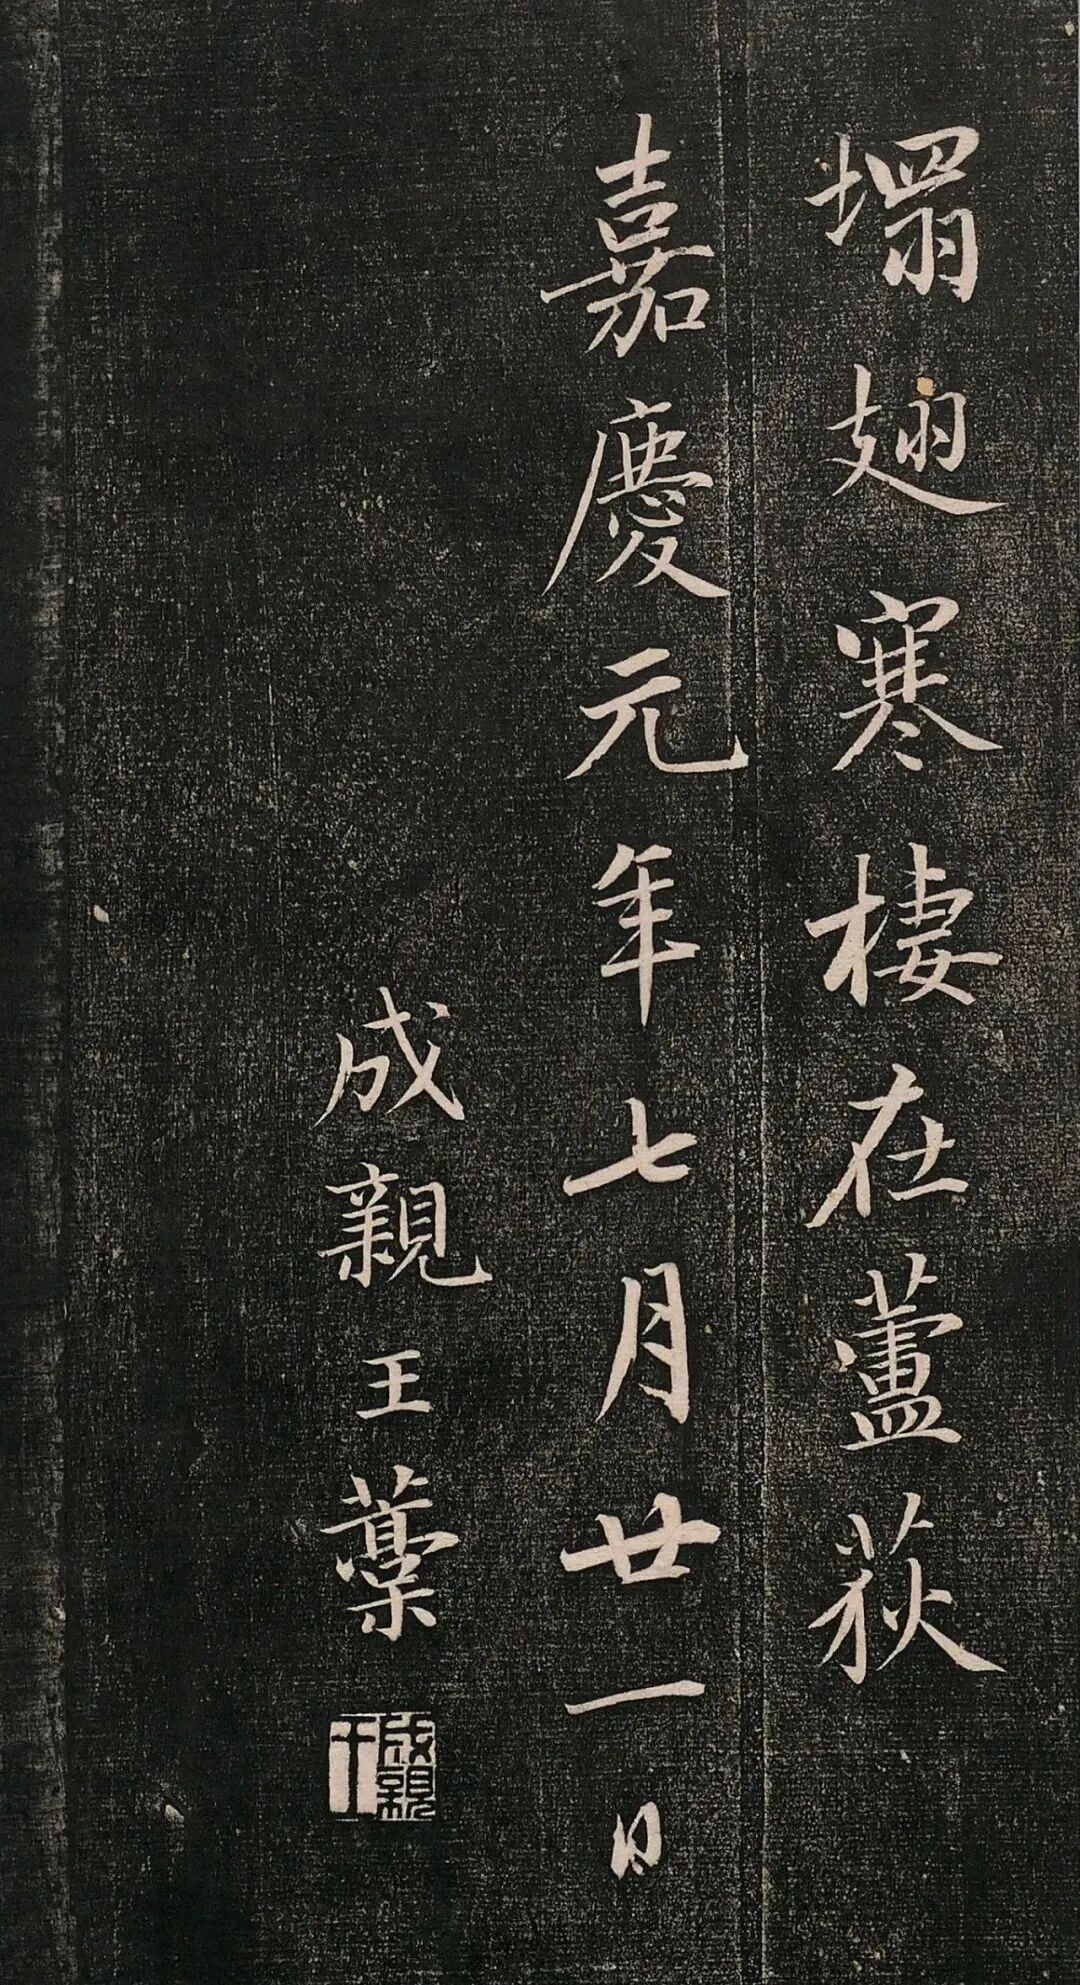 塌翅寒棲在蘆荻
嘉慶元年七月廿一日
成親王藁
成親王